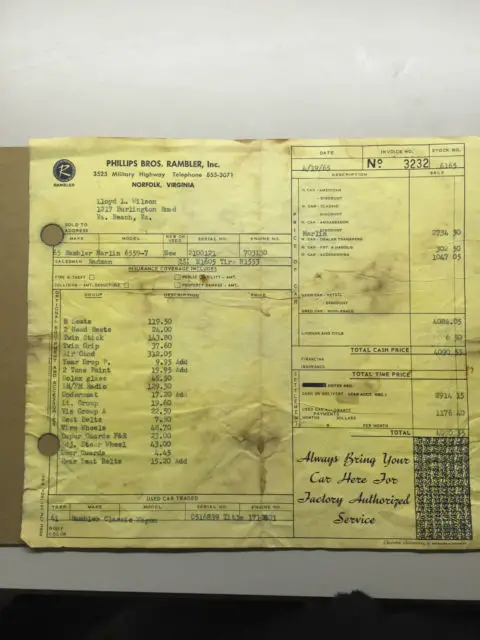 RAMBLER
PHILLIPS BROS. RAMBLER, Inc.
3525 Military Highway Telephone 855-3071
NORFOLK, VIRGINIA
DATE INVOICE NO. STOCK NO.
4/19/65 No 3232 6165
DESCRIPTION SALE
Lloyd L. Wilson
1217 Burlington Road
Va. Beach, Va.
SOLD TO
ADDRESS
MAKE MODEL NEW OR USED SERIAL NO. ENGINE NO.
65 Rambler Marlin 6559-7 New
SALESMAN Redman
INSURANCE COVERAGE INCLUDES
FIRE & THEFT PUBLIC LIABILITY - AMT.
COLLISION - AMT. DEDUCTIBLE PROPERTY DAMAGE - AMT.
GROUP DESCRIPTION PRICE
B Seats 119.50
2 Head Rests 24.00
Twin Stick 143.00
Twin Grip 37.60
Air Cond 312.05
9.95 Add
2 Tone Paint 19.95 Add
Solex glass 45.50
AM/FM Radio 129.30
Undercoat 17.20 Add
Lt. Group 19.60
Vis Group A 22.50
Seat Belts
Wire Wheels
Bumper Guards F&R 23.00
Adj. Steer Wheel 43.00
Door Guards 4.45
Rear Seat Belts 15.20 Add
N. CAR - AMERICAN
DISCOUNT
N. CAR - CLASSIC
DISCOUNT
N. CAR - AMBASSADOR
DISCOUNT
Marlin 2734 50
N. CAR - DEALER TRANSFERS
FRT & HANDLG 302 50
N. CAR - ACCESSORIES 1047 05
USED CAR - RETAIL
DISCOUNT
USED CAR - WHOLESALE
4084.05
LICENSE AND TITLE 6 50
TOTAL CASH PRICE 4090 55
FINANCING
INSURANCE
TOTAL TIME PRICE
CASH ON DELIVERY 2914 15
USED CAR 1176 40
PAYMENTS
MONTHS DOLLARS
PER MONTH
TOTAL 4090 55
Always Bring Your
Car Here For
Factory Authorized
Service
USED CAR TRADED
YEAR MAKE MODEL SERIAL NO. ENGINE NO.
61 Rambler Classic Wagon
BODY
COLOR